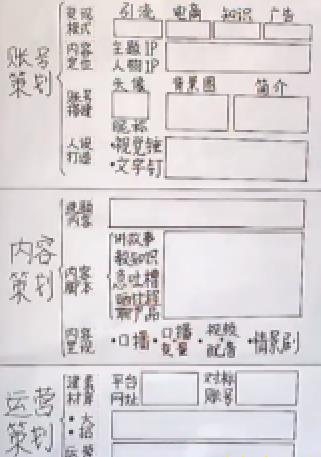 账号
策划
变现
模式
引流 电商 知识 广告
内容
定位
主题IP
人物IP
账号
搭建
头像 背景图 简介
昵称
人设
打造
•视觉锤
•文字钉
内容
策划
选题
内容
内容
脚本
讲故事
教知识
急吐槽
晒过程
聊产品
内容
呈现
•口播 •口播 •视频 •情景剧
配音
运营
策划
平台
网址
对标
账号